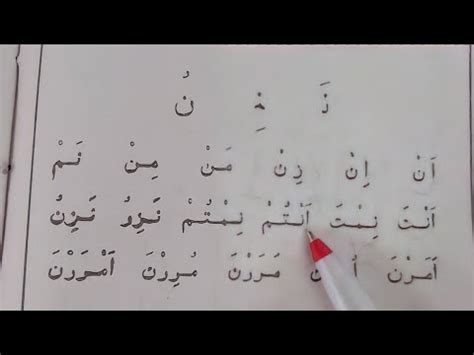 نَ نِ نُ
اَنْ اِنْ زِنْ مَنْ مِنْ نَمْ
اَنْتَ نِمْتَ اَنْتُمْ نِمْتُمْ نَزِرُ نَزِنُ
اَمَرْنَ مَرَرْنَ مُرِرْنَ اَمْرَرْنَ